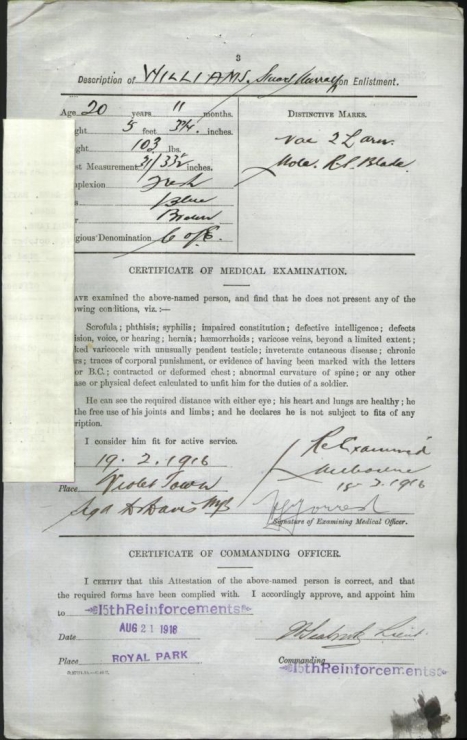 3
Description of WILLIAMS. Stuart Murray on Enlistment.
Age 20 years 11 months.
ght 5 feet 3¾ inches.
ght 103 lbs.
st Measurement 31/33½ inches.
mplexion Fresh
s Blue
r Brown
igious Denomination C of E.
DISTINCTIVE MARKS.
Vac 2 L arm.
Mole. R. S. Blade.
CERTIFICATE OF MEDICAL EXAMINATION.
AVE examined the above-named person, and find that he does not present any of the
owing conditions, viz.:—
Scrofula; phthisis; syphilis; impaired constitution; defective intelligence; defects
ision, voice, or hearing; hernia; hæmorrhoids; varicose veins, beyond a limited extent;
ked varicocele with unusually pendent testicle; inveterate cutaneous disease; chronic
rs; traces of corporal punishment, or evidence of having been marked with the letters
r B.C.; contracted or deformed chest; abnormal curvature of spine; or any other
ase or physical defect calculated to unfit him for the duties of a soldier.
He can see the required distance with either eye; his heart and lungs are healthy; he
the free use of his joints and limbs; and he declares he is not subject to fits of any
ription.
I consider him fit for active service.
19. 2. 1916
Place Violet Town
Sgd Davis MB
Re Examined
Melbourne
1916
Signature of Examining Medical Officer.
CERTIFICATE OF COMMANDING OFFICER.
I CERTIFY that this Attestation of the above-named person is correct, and that
the required forms have been complied with. I accordingly approve, and appoint him
to 15th Reinforcements
Date AUG 21 1916
Lieut.
Place ROYAL PARK
Commanding 15th Reinforcements